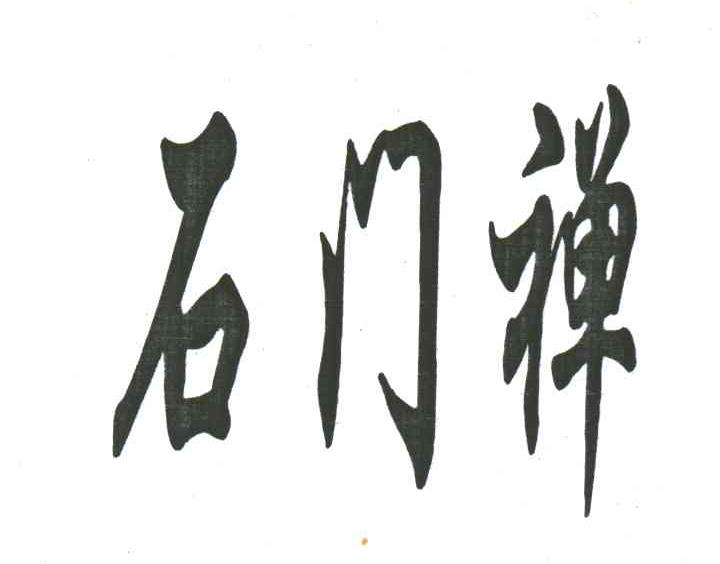 石门禅